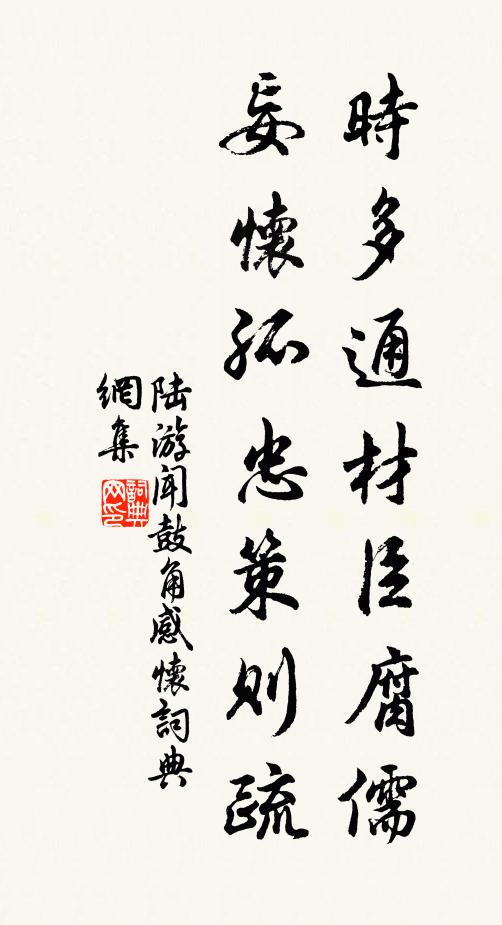 時多通材臣腐儒
妄懷孤忠策則疏
陆游闻鼓角感懷詞典
網集
詞典
网印